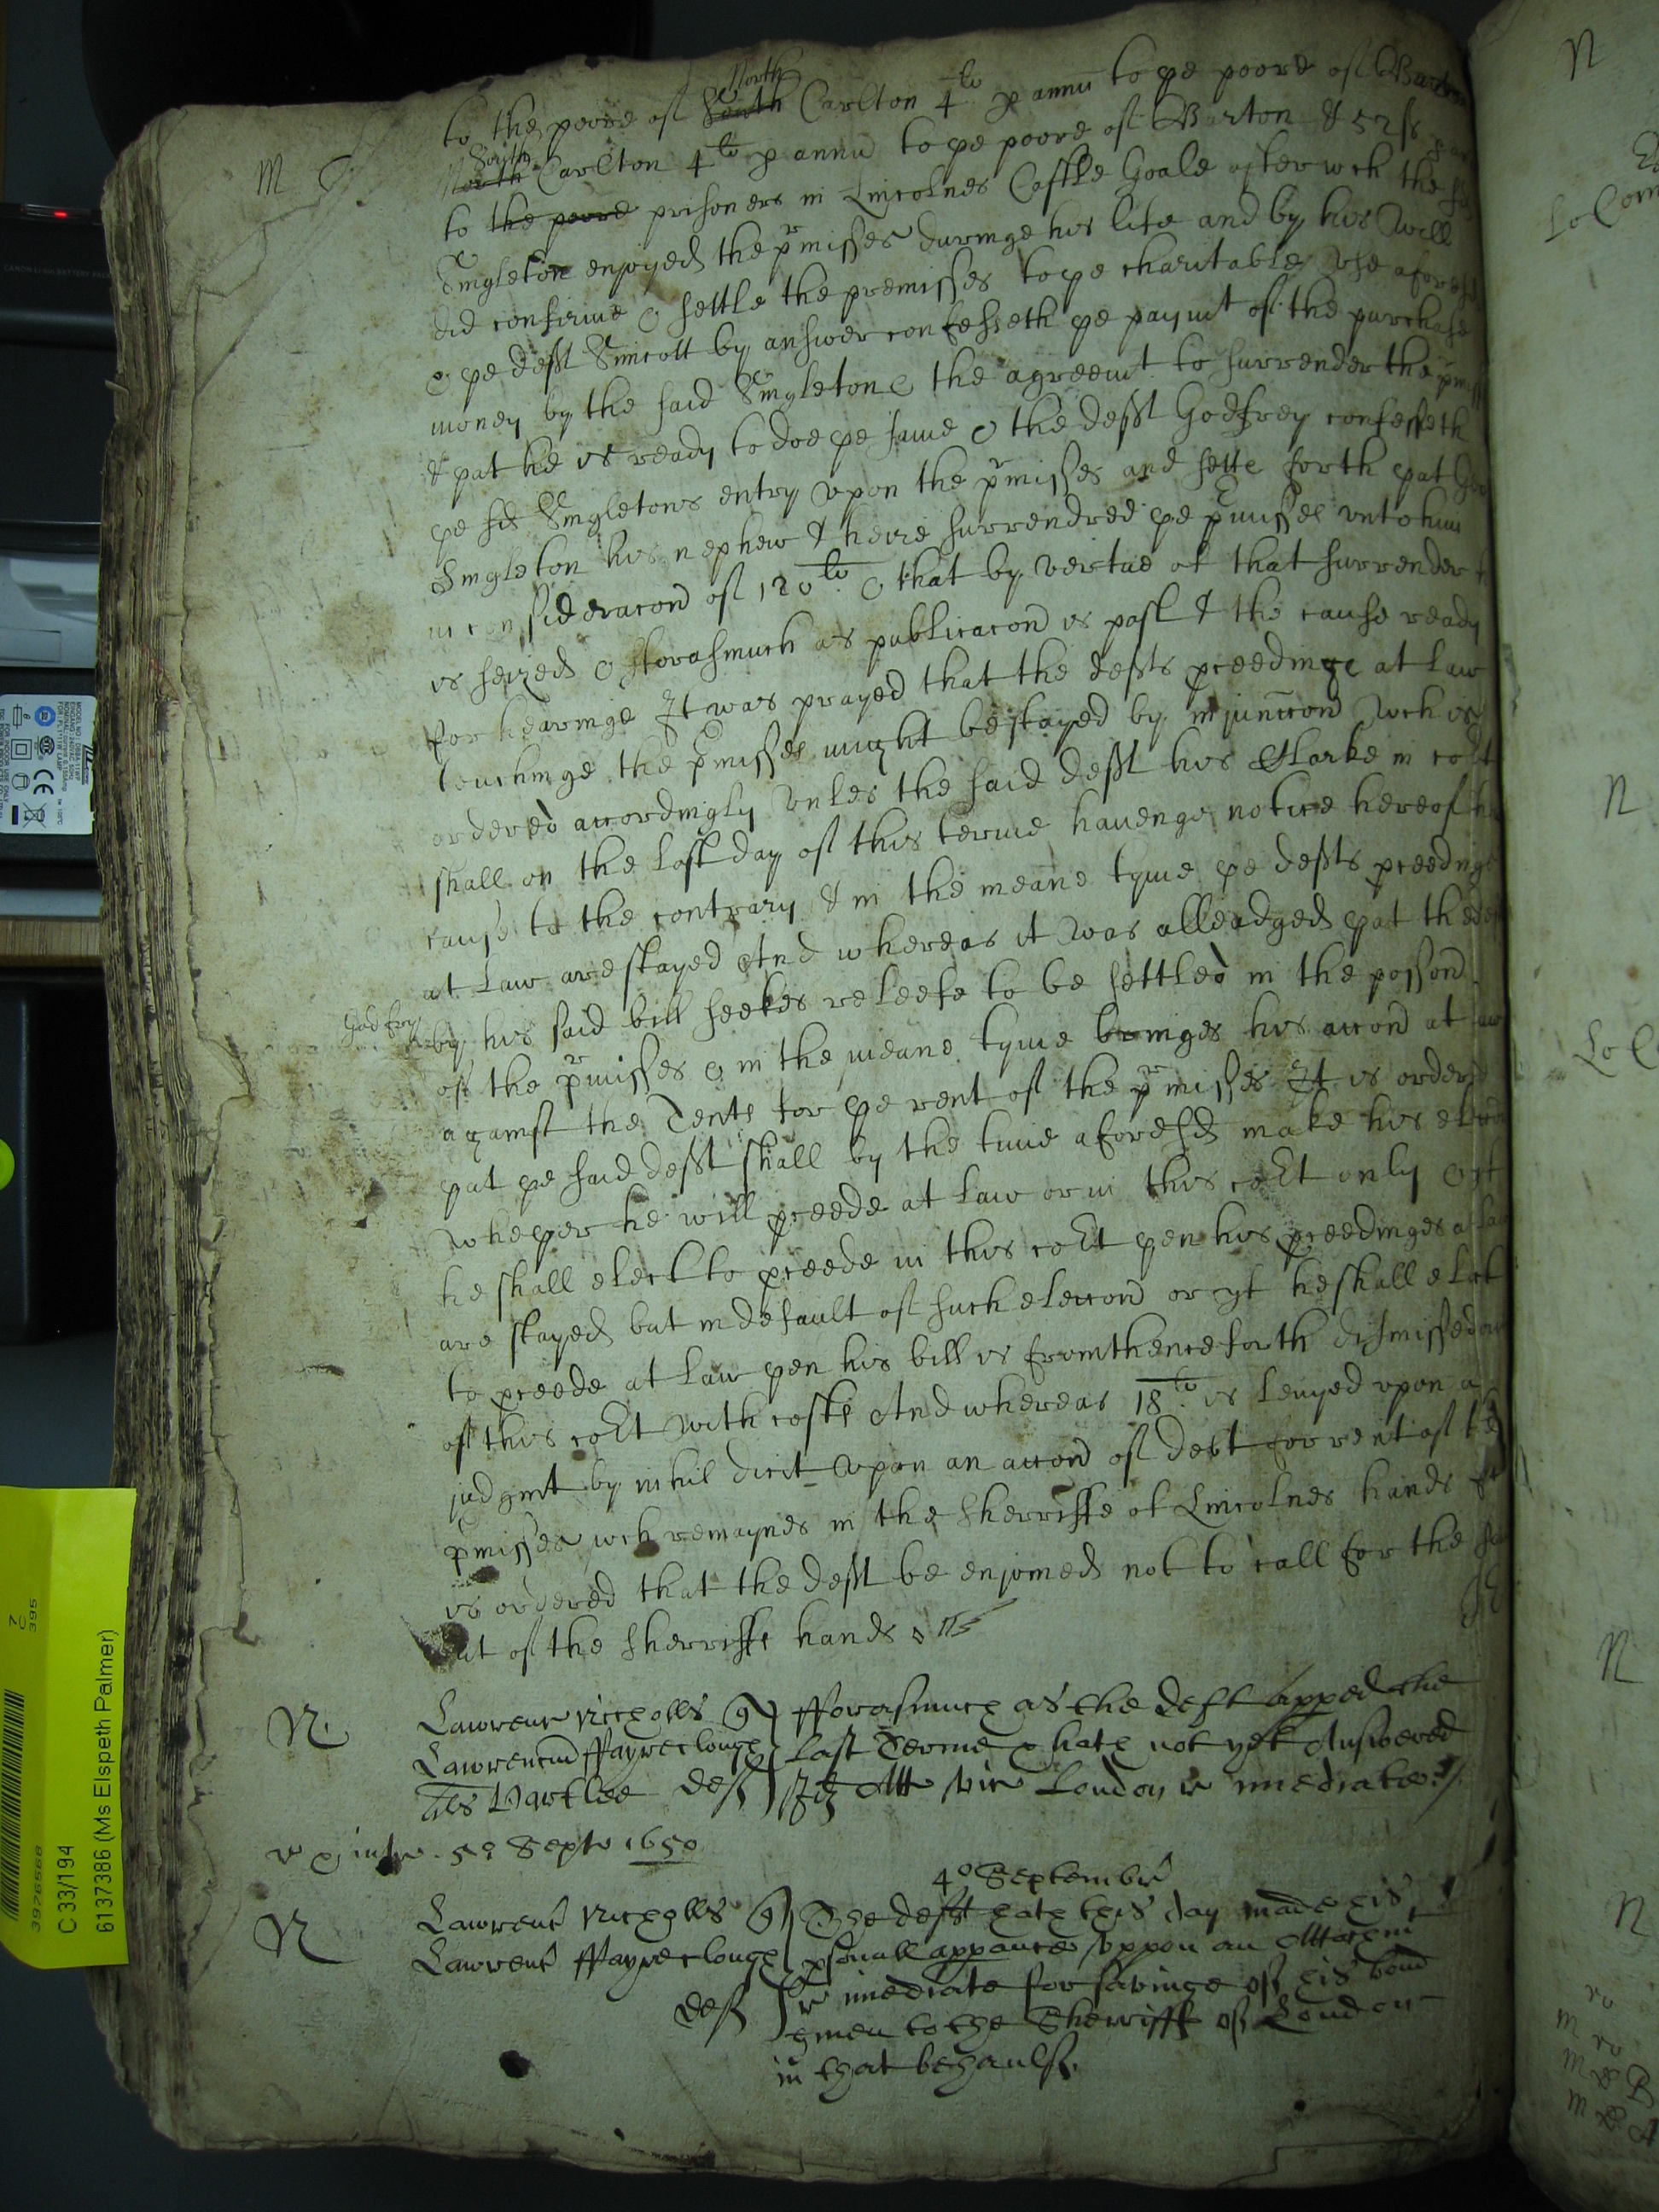 to the poore of South North Carlton 4li p annu to ye poore of Barton
North South Carlton 4li p annu to ye poore of Barton & 52s
to the poore prisoners in Lincolnes Castle Goale after wch the
Singleton enjoyed the prmisses duringe his life and by his Will
did confirme & settle the premisses to ye charitable vse aforesd
& ye deft Simcott by answer confesseth ye paymt of the purchase
money by the said Singleton & the agreemt to surrender the
& yat he is ready to doe ye same & the deft Godfrey confesseth
ye sd Singletons entry vpon the prmisses and sette forth yat
Singleton his nephew & heire surrendred ye pmisses vnto him
in consideracon of 120li & that by vertue of that surrender
is seized & fforasmuch as publicacon is past & the cause ready
for hearinge It was prayed that the defts pceedinge at law
touchinge the pmisses might be stayed by iniunccon wch is
ordered accordingly vnles the said deft his Clarke in cort
shall on the last day of this terme havenge notice hereof
cause to the contrary & in the meane tyme ye defts pceedinge
at law are stayed And whereas it was alleadged yat the
Godfrey
by his said bill seekes releefe to be settled in the possion
of the prmisses & in the meane tyme bringes his accon at law
against the Tente for ye rent of the prmisses It is ordered
yat ye said deft shall by the time aforesd make his eleccon
wheyer he will pceede at law or in this cort only & yf
he shall elect to pceede in this cort yen his pceedinges at law
are stayed but in default of such eleccon or yf he shall elect
to pceede at law yen his bill is from thenceforth dismissed out
of this cort with coste And whereas 18li is levyed vpon a
judgmt by nihil dicit vpon an accon of debt for rent of the
pmisses wch remaynes in the sherriffe of Lincolnes hands
is ordered that the deft be enjoined not to call for the
out of the sherriffe hands
N
Lawrenc Nicholls q fforasmuch as the deft apped the
Lawrencium ffayreclough last Terme & hath not yet Answered
als Hartlee deft Att vic London r imediate
intr. 5o Septr 1650
4o Septembr
N
Lawrenc Nicholls q The deft hath this day made his
Lawrenc ffayreclough psonall appance vppon an Attachmt
deft r imediate for savinge of his bond
given to the Sherriffe of London
in that behaulf.
M
C 33/194
6137386 (Ms Elspeth Palmer)
3976568
7
C
395